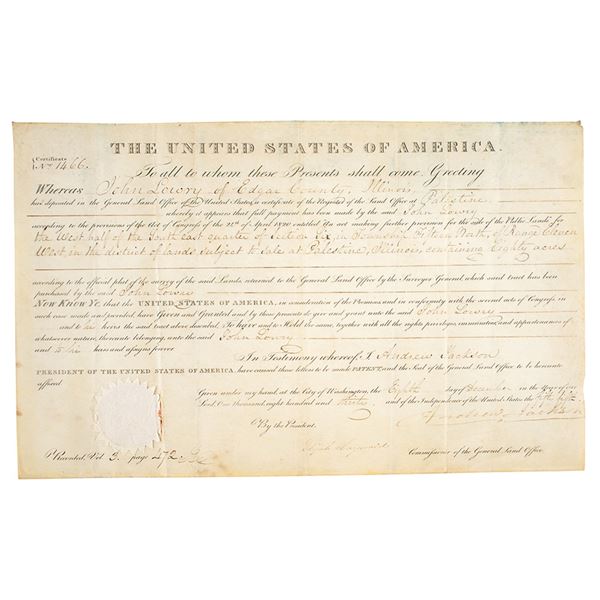 Certificate
No. 1466.
THE UNITED STATES OF AMERICA.
To all to whom these Presents shall come, Greeting
WHEREAS John Lowry of Edgar County, Illinois
has deposited in the General Land Office of the United States, a certificate of the Register of the Land Office at Palestine
whereby it appears that full payment has been made by the said John Lowry
according to the provisions of the Act of Congress of the 24th of April 1820 entitled An act making further provision for the sale of the Public Lands for
the West half of the South east quarter of Section Six in Township Fifteen North, of Range Eleven
West in the district of lands subject to sale at Palestine, Illinois, containing Eighty acres
according to the official plat of the survey of the said Lands returned to the General Land Office by the Surveyor General, which said tract has been
purchased by the said John Lowry
NOW KNOW YE that the UNITED STATES OF AMERICA, in consideration of the Premises, and in conformity with the several acts of Congress, in
such case made and provided, have Given and Granted and by these presents do give and grant unto the said John Lowry
and to his heirs the said tract above described. To have and to Hold the same, together with all the rights, privileges, immunities and appurtenances of
whatsoever nature, thereunto belonging, unto the said John Lowry
and to his heirs and assigns forever
In Testimony whereof I Andrew Jackson
PRESIDENT OF THE UNITED STATES OF AMERICA, have caused these letters to be made PATENT, and the Seal of the General Land Office to be hereunto
affixed
Given under my hand, at the City of Washington, the Eighth day of December in the Year of our
Lord One thousand eight hundred and thirty and of the Independence of the United States the fifty fifth
Andrew Jackson
By the President.
Elijah Hayward Commissioner of the General Land Office.
Recorded, Vol 3. page 472